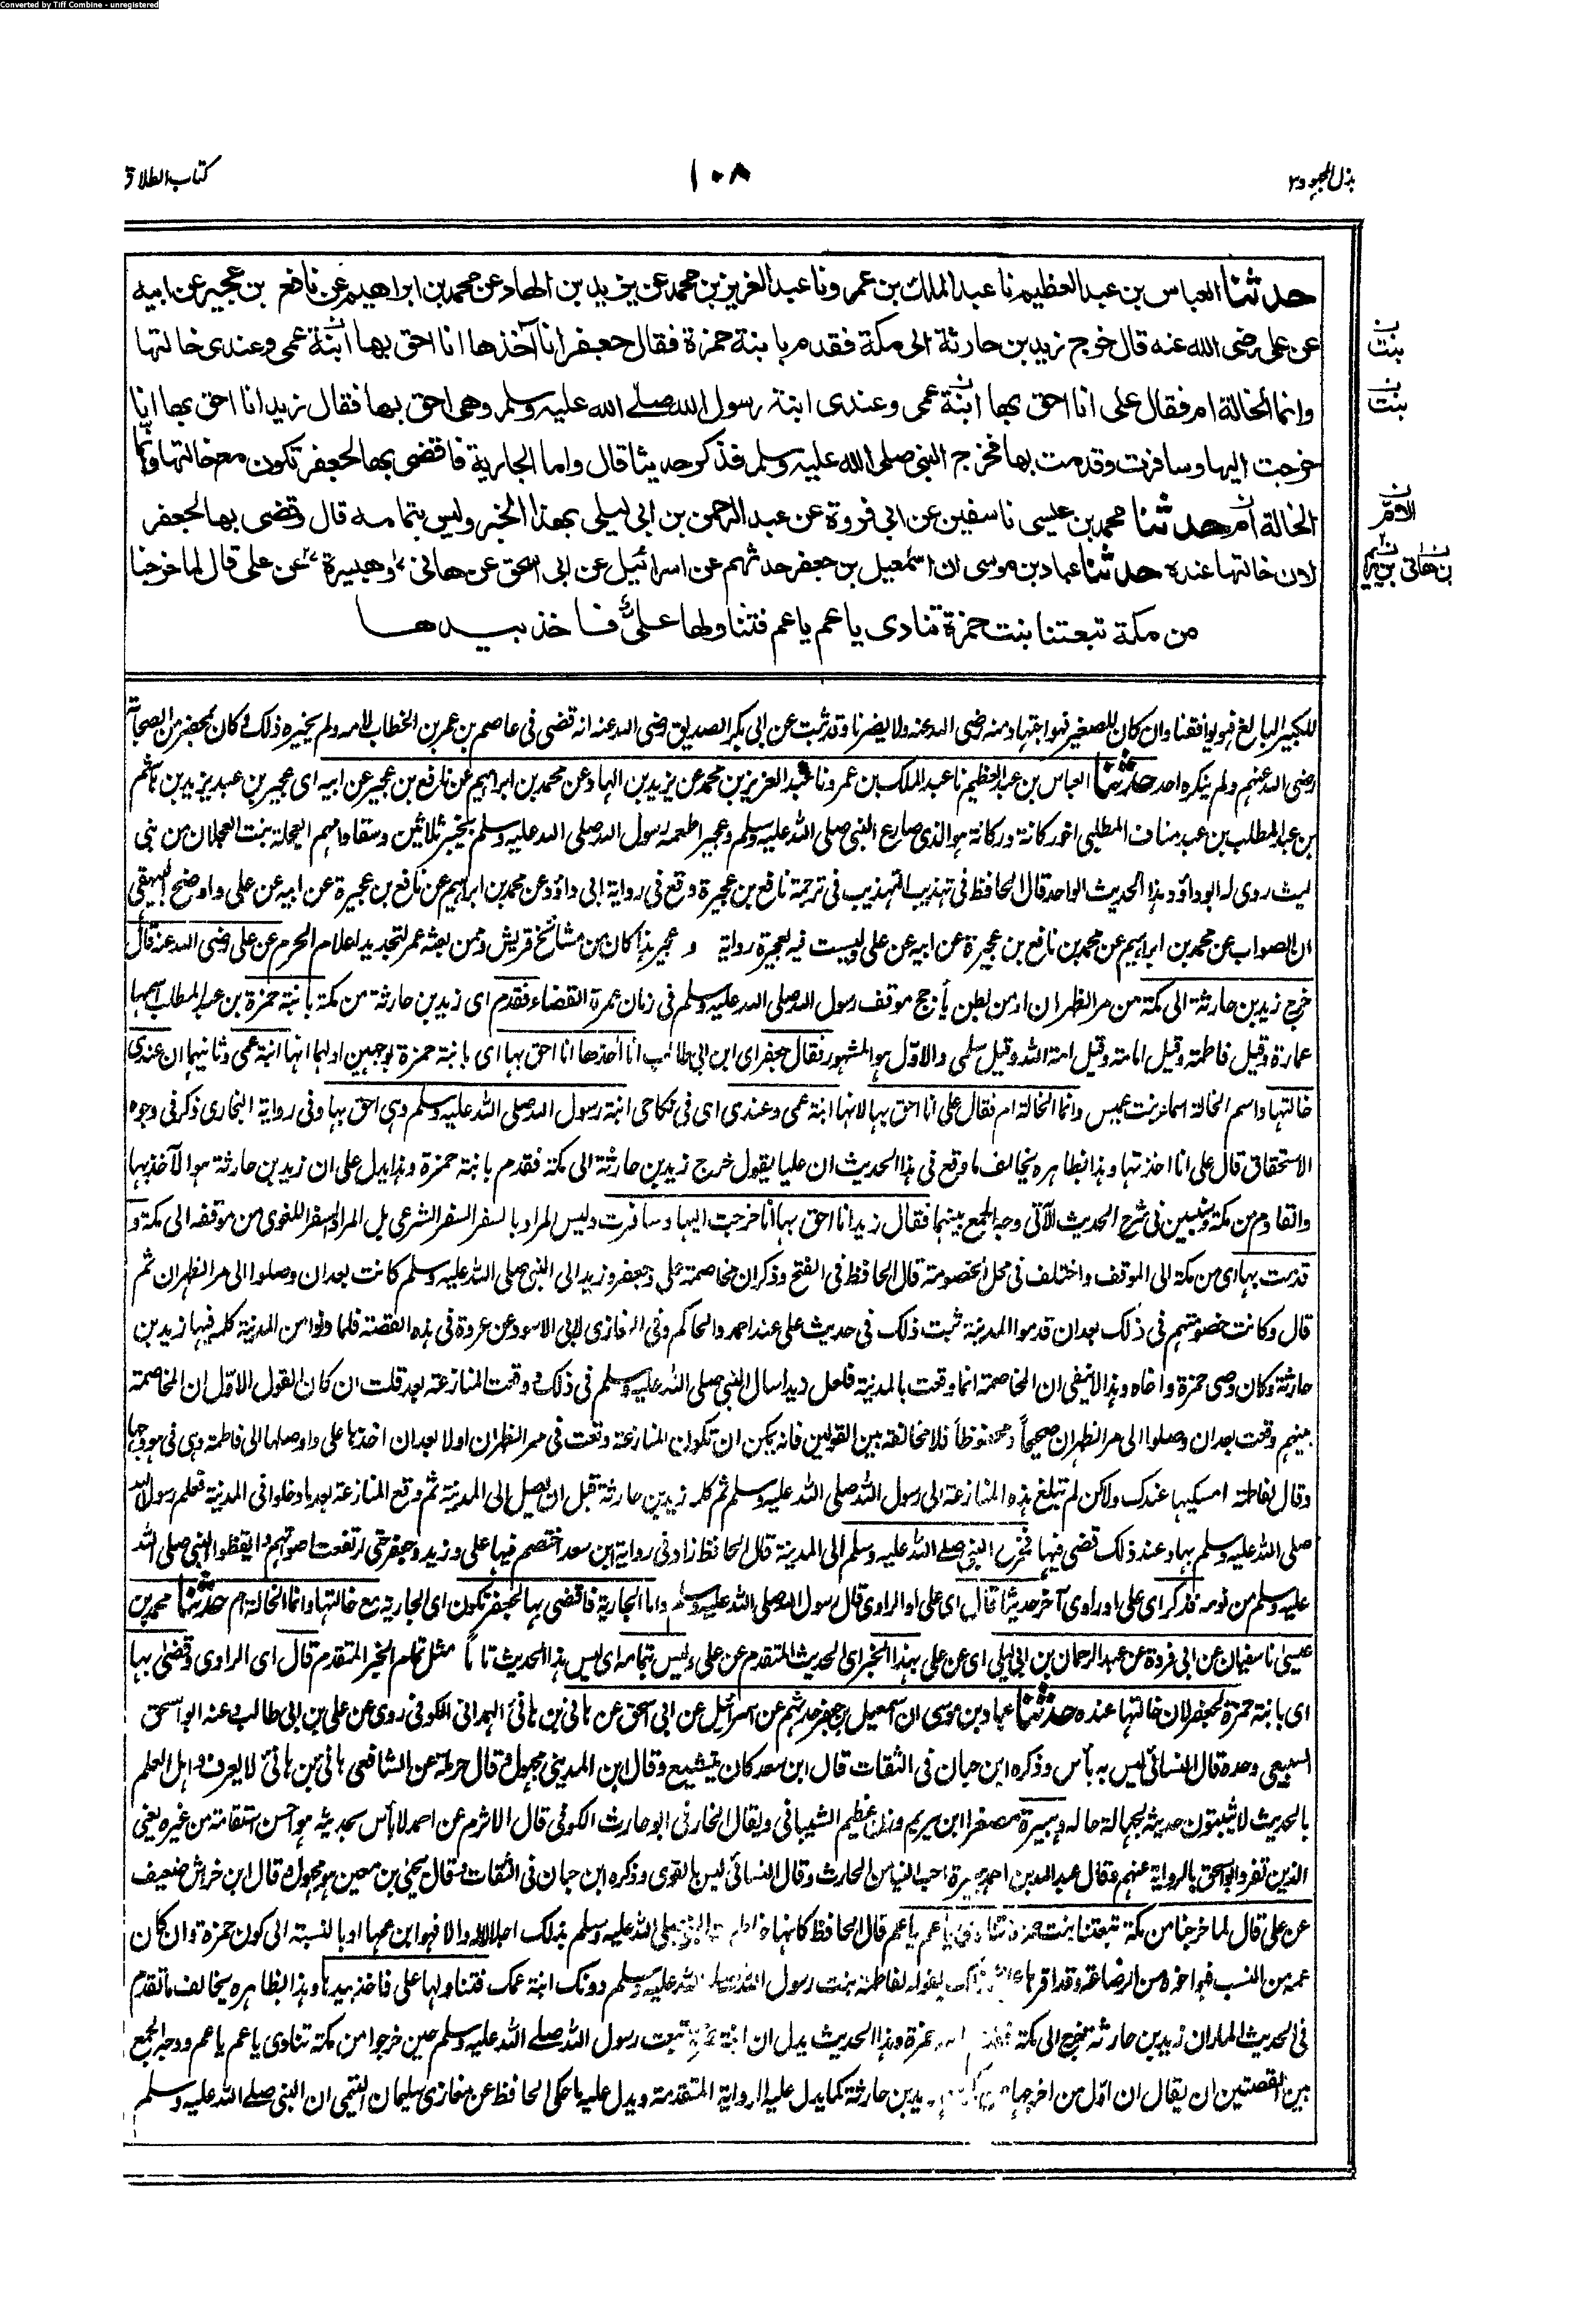 Converted by Tiff Combine - unregistered
بذل المجهود ٣
١٠٨
كتاب الطلاق
حدثنا العباس بن عبد العظيم نا عبد الملك بن عمرو نا عبد العزيز بن محمد عن يزيد بن الهاد عن محمد بن ابراهيم عن نافع بن عجير عن ابيه
عن على رضى الله عنه قال خرج زيد بن حارثة الى مكة فقدم بابنة حمزة فقال جعفر انا آخذها انا احق بها ابنة عمى وعندى خالتها
وانما الخالة ام فقال على انا احق بها ابنة عمى وعندى ابنة رسول الله صلے الله عليه وسلم وهى احق بها فقال زيد انا احق بها انا
خرجت اليها وسافرت وقدمت بها فخرج النبى صلى الله عليه وسلم فذكر حديثا قال واما الجارية فاقضى بها لجعفر تكون مع خالتها وانما
الخالة ام حدثنا محمد بن عيسى نا سفين عن ابى فروة عن عبد الرحمن بن ابى ليلى بهذا الخبر وليس بتمامه قال وقضى بها لجعفر
لان خالتها عنده حدثنا عباد بن موسى ان اسمعيل بن جعفر حدثهم عن اسرائيل عن ابى اسحق عن هانئ وهبيرة عن على قال لما خرجنا
من مكة تبعتنا بنت حمزة تنادى يا عم يا عم فتناولها على فاخذ بيدها
بنت
بنت
الام
بن هانئ بن يريم
للكبير البالغ فهو يوافقنا وان كان للصغير فهو اجتهاد منه رضى الله عنه ولا يضرنا وقد ثبت عن ابى بكر الصديق رضى الله عنه انه قضى فى عاصم بن عمر بن الخطاب لامه ولم يخيره ذلك فى كان بمحضر من الصحابة
رضى الله عنهم ولم ينكره احد حدثنا العباس بن عبد العظيم نا عبد الملك بن عمرو نا عبد العزيز بن محمد عن يزيد بن الهاد عن محمد بن ابراهيم عن نافع بن عجير عن ابيه اى عجير بن عبد يزيد بن هاشم
بن عبد المطلب بن عبد مناف المطلبى اخو ركانة وركانة هو الذى صارع النبى صلى الله عليه وسلم وعجير اطعمه رسول الله صلى الله عليه وسلم بخيبر ثلاثين وسقا وامهم العجلة بنت العجلان من بنى
ليث روى له ابو داؤد هذا الحديث الواحد قال الحافظ فى تهذيب التهذيب فى ترجمة نافع بن عجيرة وقع فى رواية ابى داؤد عن محمد بن ابراهيم عن نافع بن عجيرة عن ابيه عن على واوضح البيهقى
ان الصواب عن محمد بن ابراهيم عن محمد بن نافع بن عجيرة عن ابيه عن على وليست فيه لعجيرة رواية و عجير هذا كان من مشائخ قريش وممن بعثه عمر لتجديد اعلام الحرم عن على رضى الله عنه قال
خرج زيد بن حارثة الى مكة من مر الظهران او من بطن يأجج موقف رسول الله صلى الله عليه وسلم فى زمان عمرة القضاء فقدم اى زيد بن حارثة من مكة بابنة حمزة بن عبد المطلب اسمها
عمارة وقيل فاطمة وقيل امامة وقيل امة الله وقيل سلمى والاول هو المشهور فقال جعفر اى ابن ابى طالب انا آخذها انا احق بها اى بابنة حمزة بوجهين اولهما انها ابنة عمى وثانيهما ان عندى
خالتها واسم الخالة اسماء بنت عميس وانما الخالة ام فقال على انا احق بها لانها ابنة عمى وعندى اى فى نكاحى ابنة رسول الله صلى الله عليه وسلم وهى احق بها وفى رواية البخارى ذكر فى وجوه
الاستحقاق قال على انا اخذتها وهذا بظاهره يخالف ما وقع فى هذا الحديث ان عليا يقول خرج زيد بن حارثة الى مكة فقدم بابنة حمزة وهذا يدل على ان زيد بن حارثة هو الآخذ بها
والقادم من مكة وسنبين فى شرح الحديث الآتى وجه الجمع بينهما فقال زيد انا احق بها انا خرجت اليها وسافرت وليس المراد بالسفر السفر الشرعى بل المراد السفر اللغوى من موقفه الى مكة و
قدمت بها اى من مكة الى الموقف واختلف فى محل الخصومة قال الحافظ فى الفتح وذكر ان مخاصمة على وجعفر وزيد الى النبى صلى الله عليه وسلم كانت بعد ان وصلوا الى مر الظهران ثم
قال وكانت خصومتهم فى ذلك بعد ان قدموا المدينة ثبت ذلك فى حديث على عند احمد والحاكم وفى المغازى لابى الاسود عن عروة فى هذه القصة فلما دنوا من المدينة كلمه فيها زيد بن
حارثة وكان وصى حمزة واخاه وهذا لا ينفى ان المخاصمة انما وقعت بالمدينة فلعل زيدا سال النبى صلى الله عليه وسلم فى ذلك و وقعت المنازعة بعد قلت ان كان القول الاول ان المخاصمة
بينهم وقعت بعد ان وصلوا الى مر الظهران صحيحاً ومحفوظاً فلا مخالفة بين القولين فانه يمكن ان تكون المنازعة وقعت فى مر الظهران اولا بعد ان اخذها على واوصلها الى فاطمة وهى فى هودجها
وقال لفاطمة امسكيها عندك ولكن لم تبلغ هذه المنازعة الى رسول الله صلى الله عليه وسلم ثم كلمه زيد بن حارثة قبل ان يصل الى المدينة ثم وقع المنازعة بعد ما دخلوا فى المدينة فعلم رسول الله
صلى الله عليه وسلم بها وعند ذلك قضى فيها فخرج النبى صلے الله عليه وسلم الى المدينة قال الحافظ زاد فى رواية ابن سعد اختصم فيها على وزيد وجعفر حتى ارتفعت اصواتهم فايقظوا النبى صلى الله
عليه وسلم من نومه فذكر اى على او راوى آخر حديثا قال اى على او الراوى قال رسول الله صلى الله عليه وسلم واما الجارية فاقضى بها لجعفر تكون اى الجارية مع خالتها وانما الخالة ام حدثنا محمد بن
عيسى نا سفيان عن ابى فروة عن عبد الرحمان بن ابى ليلى اى عن على بهذا الخبر اى الحديث المتقدم عن على وليس بتمامه اى ليس هذا الحديث تاماً مثل تمام الخبر المتقدم قال اى الراوى وقضى بها
اى بابنة حمزة لجعفر لان خالتها عنده حدثنا عباد بن موسى ان اسمعيل بن جعفر حدثهم عن اسرائيل عن ابى اسحق عن هانى بن هانئ الهمدانى الكوفى روى عن على بن ابى طالب وعنه ابو اسحق
السبيعى وحده قال النسائى ليس به بأس وذكره ابن حبان فى الثقات قال ابن سعد كان يتشيع وقال ابن المدينى مجهول وقال حرملة عن الشافعى هانئ بن هانئ لا يعرف و اهل العلم
بالحديث لا يثبتون حديثه لجهالة حاله وهبيرة مصغرا ابن يريم وزان عظيم الشيبانى ويقال الخارفى ابو حارث الكوفى قال الاثرم عن احمد لا بأس بحديثه هو احسن استقامة من غيره يعنى
الذين تفرد ابو اسحق بالرواية عنهم وقال عبد الله بن احمد هبيرة احب الينا من الحارث وقال النسائى ليس بالقوى وذكره ابن حبان فى الثقات وقال يحيى بن معين هو مجهول وقال ابن خراش ضعيف
عن على قال لما خرجنا من مكة تبعتنا بنت حمزة تنادى يا عم يا عم قال الحافظ كانها خاطبت النبى صلى الله عليه وسلم بذلك اجلالا له والا فهو ابن عمها او بالنسبة الى كون حمزة وان كان
عمه من النسب فهو اخوه من الرضاعة وقد اقرها على ذلك بقوله لفاطمة بنت رسول الله صلى الله عليه وسلم دونك ابنة عمك فتناولها على فاخذ بيدها وهذا بظاهره يخالف ما تقدم
فى الحديث المار ان زيد بن حارثة خرج الى مكة حمزة وهذا الحديث يدل ان ابنة حمزة تبعت رسول الله صلے الله عليه وسلم حين خرجوا من مكة تنادى يا عم يا عم ووجه الجمع
بين القصتين ان يقال ان اول من اخرجها زيد بن حارثة كما يدل عليه الرواية المتقدمة ويدل عليه ما حكى الحافظ عن مغازى سليمان التيمى ان النبى صلے الله عليه وسلم